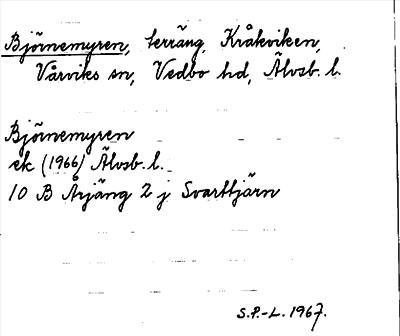 Björnemyren, terräng, Kråkviken,
Vårviks sn, Vedbo hd, Älvsb. l.
Björnemyren
ek (1966) Älvsb. l.
10 B Årjäng 2 j Svarttjärn
S.P.-L. 1967.